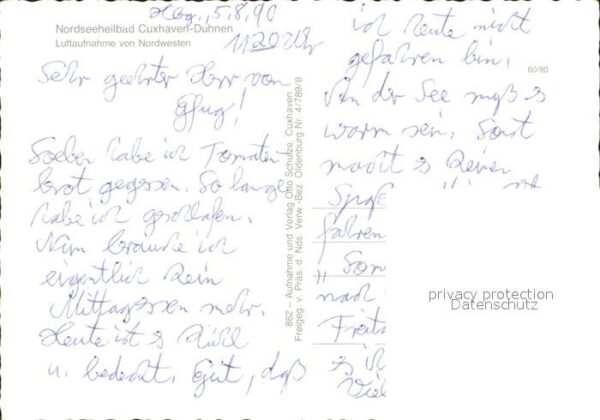 Nordseeheilbad Cuxhaven-Duhnen
Luftaufnahme von Nordwesten
Hbg., 5.8.90
1120 Uhr
Sehr geehrter Herr von
Soeben habe ich Tomaten
brot gegessen. So lange
habe ich geschlafen.
Nun brauche ich
eigentlich kein
Mittagessen mehr.
Heute ist es kühl
u. bedeckt. Gut, daß
862 – Aufnahme und Verlag Otto Schulze, Cuxhaven
Freigeg. v. Präs. d. Nds. Verw.-Bez. Oldenburg Nr. 4/789/8
60/90
ich heute nicht
gefahren bin.
An der See muß es
warm sein. Sonst
macht es keinen
Spaß
fahren
nach
Freita
privacy protection
Datenschutz